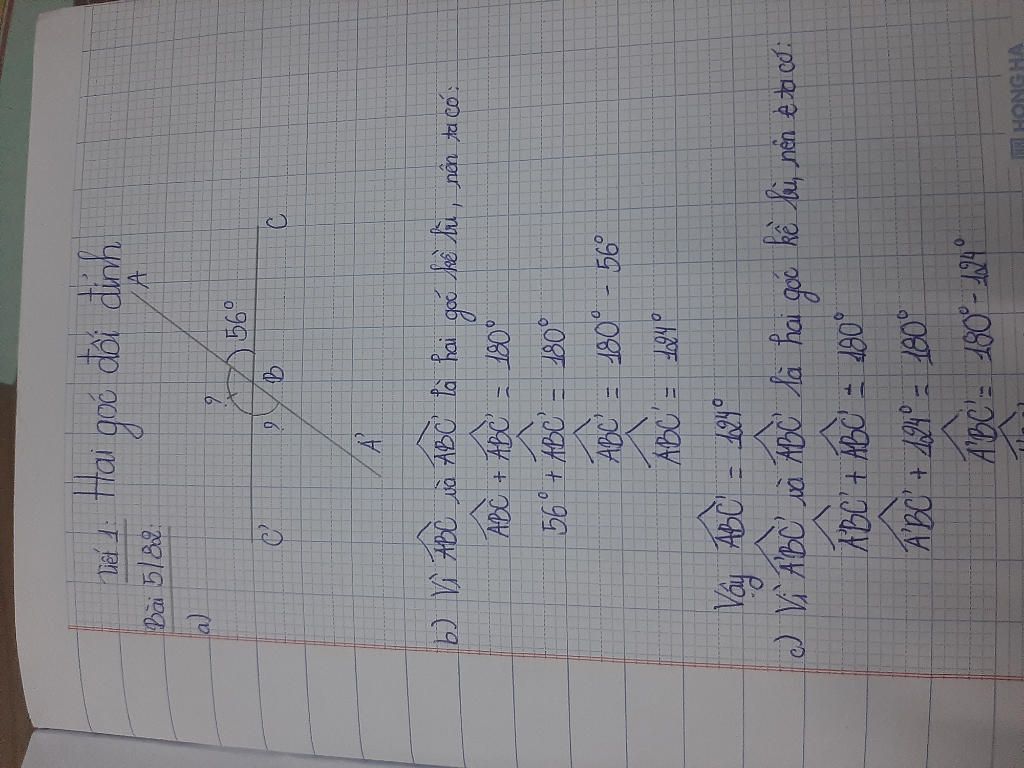 Tiết 1: Hai góc đối đỉnh
Bài 5/82:
a)
A
?
56°
C'
?
B
C
A'
b) Vì ABC và ABC' là hai góc kề bù, nên ta có:
ABC + ABC' = 180°
56° + ABC' = 180°
ABC' = 180° - 56°
ABC' = 124°
Vậy ABC' = 124°
c) Vì A'BC' và ABC' là hai góc kề bù, nên ta có:
A'BC' + ABC' = 180°
A'BC' + 124° = 180°
A'BC' = 180° - 124°
HONG HA